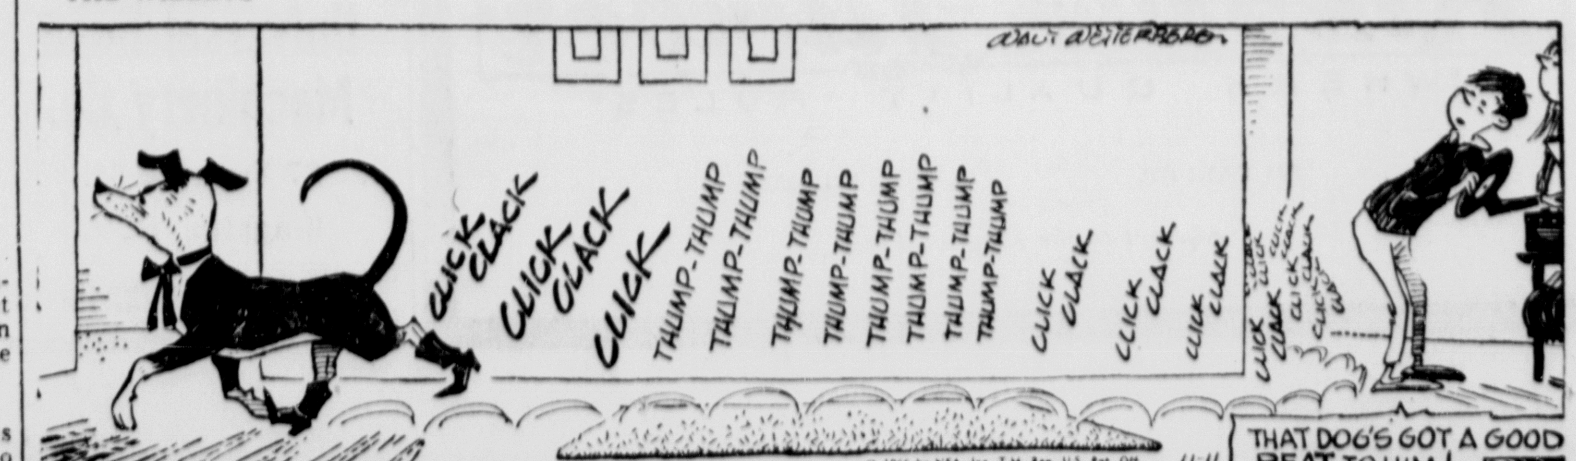 WALT WETTERBERG
CLICK
CLACK
CLICK
CLACK
CLICK
THUMP-THUMP
THUMP-THUMP
THUMP-THUMP
THUMP-THUMP
THUMP-THUMP
THUMP-THUMP
THUMP-THUMP
THUMP-THUMP
CLICK
CLACK
CLICK
CLACK
CLICK
CLACK
CLICK
CLACK
CLICK
CLICK
CLACK
CLICK
THAT DOG'S GOT A GOOD
BEAT TO HIM!
11-11